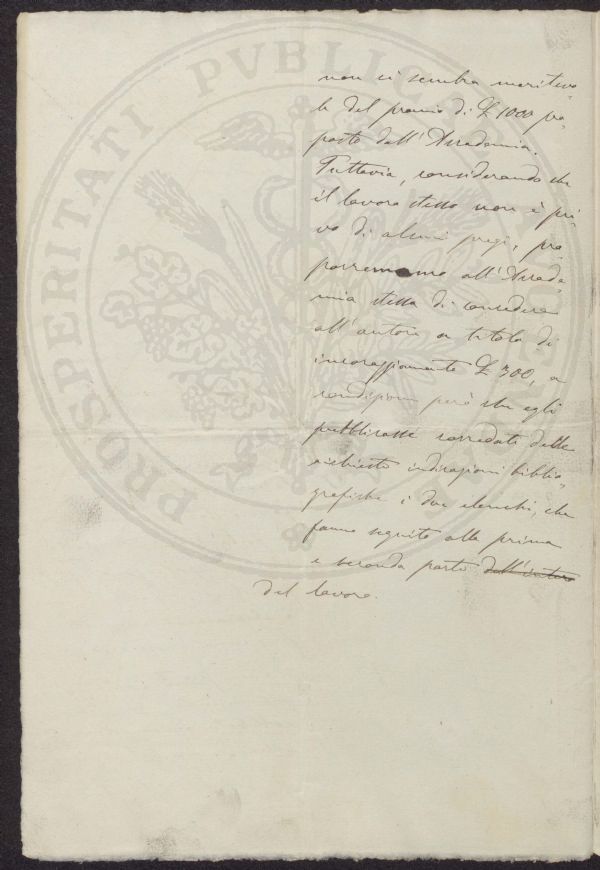 PROSPERITATI PVBLICAE AVGENDAE
non ci sembra meritevo
le del premio di £ 1000 pro-
posto dall'Accademia.
Tuttavia, considerando che
il lavoro stesso non è pri
vo di alcuni pregi, pro
porremmo all'Accade-
mia stessa di concedere
all'autore a titolo di
incoraggiamento £ 300, a
condizione però che egli
pubblicasse corredati delle
richieste indicazioni biblio-
grafiche i due elenchi, che
fanno seguito alla prima
e seconda parte dell'intero
del lavoro.